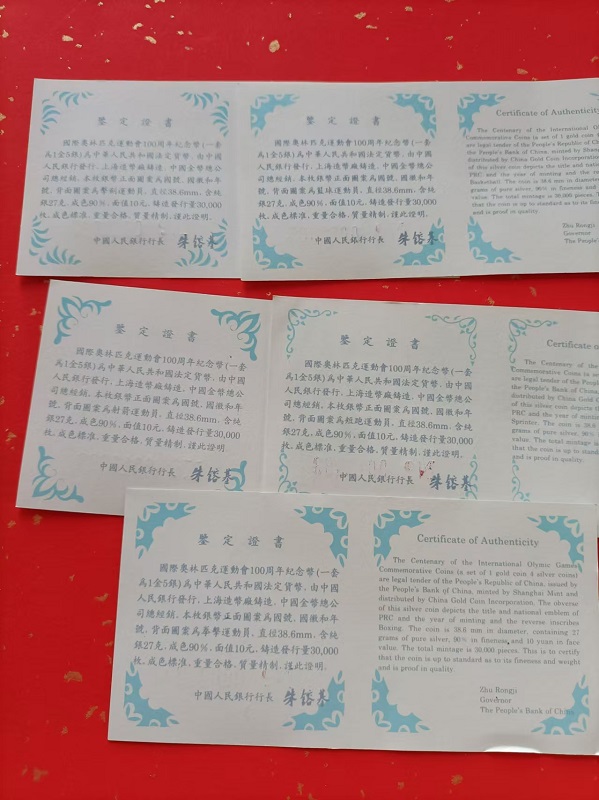 鑒定證書
國際奧林匹克運動會100周年紀念幣(一套
爲1金5銀)爲中華人民共和國法定貨幣，由中國
人民銀行發行，上海造幣廠鑄造，中國金幣總公
司總經銷。本枚銀幣正面圖案爲國號、國徽和年
號，背面圖案爲擊劍運動員，直徑38.6mm，含純
銀27克，成色90%，面值10元，鑄造發行量30,000
枚，成色標准，重量合格，質量精制，謹此證明。
中國人民銀行行長 朱镕基
鑒定證書
國際奧林匹克運動會100周年紀念幣(一套
爲1金5銀)爲中華人民共和國法定貨幣，由中國
人民銀行發行，上海造幣廠鑄造，中國金幣總公
司總經銷。本枚銀幣正面圖案爲國號、國徽和年
號，背面圖案爲籃球運動員，直徑38.6mm，含純
銀27克，成色90%，面值10元，鑄造發行量30,000
枚，成色標准，重量合格，質量精制，謹此證明。
中國人民銀行行長 朱镕基
Certificate of Authenticity
The Centenary of the International O
Commemorative Coins (a set of 1 gold coin 4
are legal tender of the People's Republic of Ch
the People's Bank of China, minted by Shangha
distributed by China Gold Coin Incorporation. T
of this silver coin depicts the title and national
PRC and the year of minting and the rev
Basketball. The coin is 38.6 mm in diameter,
grams of pure silver, 90% in fineness and
value. The total mintage is 30,000 pieces. This
that the coin is up to standard as to its finene
and is proof in quality.
Zhu Rongji
Governor
The People's
鑒定證書
國際奧林匹克運動會100周年紀念幣(一套
爲1金5銀)爲中華人民共和國法定貨幣，由中國
人民銀行發行，上海造幣廠鑄造，中國金幣總公
司總經銷。本枚銀幣正面圖案爲國號、國徽和年
號，背面圖案爲射箭運動員，直徑38.6mm，含純
銀27克，成色90%，面值10元，鑄造發行量30,000
枚，成色標准，重量合格，質量精制，謹此證明。
中國人民銀行行長 朱镕基
鑒定證書
國際奧林匹克運動會100周年紀念幣(一套
爲1金5銀)爲中華人民共和國法定貨幣，由中國
人民銀行發行，上海造幣廠鑄造，中國金幣總公
司總經銷。本枚銀幣正面圖案爲國號、國徽和年
號，背面圖案爲短跑運動員，直徑38.6mm，含純
銀27克，成色90%，面值10元，鑄造發行量30,000
枚，成色標准，重量合格，質量精制，謹此證明。
中國人民銀行行長 朱镕基
Certificate o
The Centenary of the
Commemorative Coins (a set
are legal tender of the Peopl
the People's Bank of China,
distributed by China Gold C
of this silver coin depicts th
PRC and the year of mint
Sprinter. The coin is 38.6
grams of pure silver, 90%
value. The total mintage is
that the coin is up to stan
and is proof in quality.
鑒定證書
國際奧林匹克運動會100周年紀念幣(一套
爲1金5銀)爲中華人民共和國法定貨幣，由中國
人民銀行發行，上海造幣廠鑄造，中國金幣總公
司總經銷。本枚銀幣正面圖案爲國號、國徽和年
號，背面圖案爲拳擊運動員，直徑38.6mm，含純
銀27克，成色90%，面值10元，鑄造發行量30,000
枚，成色標准，重量合格，質量精制，謹此證明。
中國人民銀行行長 朱镕基
Certificate of Authenticity
The Centenary of the International Olymic Games
Commemorative Coins (a set of 1 gold coin 4 silver coins)
are legal tender of the People's Republic of China, issued
by the People's Bank of China, minted by Shanghai Mint and
distributed by China Gold Coin Incorporation. The obverse
of this silver coin depicts the title and national emblem of
PRC and the year of minting and the reverse inscribes
Boxing. The coin is 38.6 mm in diameter, containing 27
grams of pure silver, 90% in fineness and 10 yuan in face
value. The total mintage is 30,000 pieces. This is to certify
that the coin is up to standard as to its fineness and weight
and is proof in quality.
Zhu Rongji
Governor
The People's Bank of China